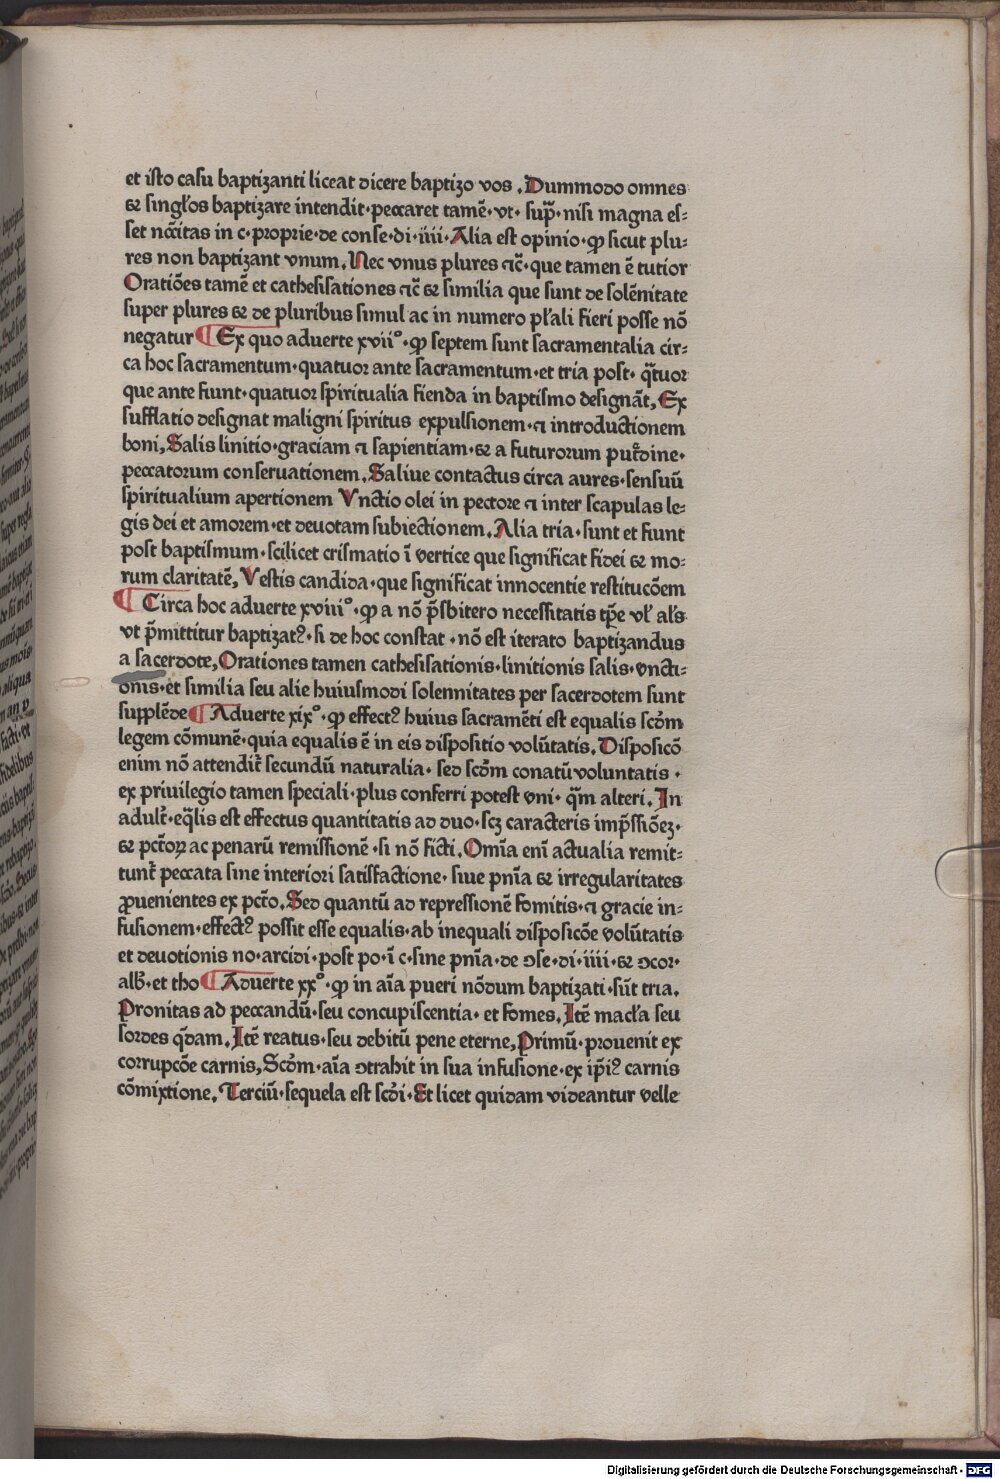 et iſto caſu baptizanti liceat dicere baptizo vos . Dummodo omnes
⁊ ſingl̓os baptizare intendit·peccaret tamē·vt· ſup̄·niſi magna eſ⸗
ſet nc̄itas in c·proprie·de conſe·di·iiii·Alia eſt opinio·ꝙ ſicut plu⸗
res non baptizant vnum. Nec vnus plures ⁊c̄·que tamen ē tutior
Oratiōes tamē et cathesiſationes ⁊c̄ ⁊ ſimilia que ſunt de ſolēnitate
ſuper plures ⁊ de pluribus ſimul ac in numero pl̓ali fieri poſſe nō
negatur ¶ Ex quo aduerte xviiº·ꝙ ſeptem ſunt ſacramentalia cir⸗
ca hoc ſacramentum·quatuor ante ſacramentum·et tria poſt· q̄tuor
que ante fiunt·quatuor ſpiritualia fienda in baptiſmo deſignāt, Ex
ſufflatio deſignat maligni ſpiritus expulſionem·⁊ introductionem
boni, Salis linitio·graciam ⁊ ſapientiam·⁊ a futurorum put̄dine·
peccatorum conſeruationem. Saliue contactus circa aures·ſenſuū
ſpiritualium apertionem Vnctio olei in pectore ⁊ inter ſcapulas le⸗
gis dei et amorem·et deuotam ſubiectionem. Alia tria·ſunt et fiunt
poſt baptiſmum·ſcilicet criſmatio ī vertice que ſignificat fidei ⁊ mo⸗
rum claritatē, Veſtis candida·que ſignificat innocentie reſtitucōem
¶ Circa hoc aduerte xviiiº·ꝙ a nō p̄ſbitero neceſſitatis tp̄e vl̓ al̓s
vt p̄mittitur baptizatꝰ·ſi de hoc conſtat·nō eſt iterato baptizandus
a ſacerdote, Orationes tamen catheſiſationis·linitionis ſalis·vncti⸗
onis·et ſimilia ſeu alie huiuſmodi ſolennitates per ſacerdotem ſunt
ſupplēde ¶ Aduerte xixº·ꝙ effectꝰ huius ſacramēti eſt equalis ſcd̄m
legem cōmunē·quia equalis ē in eis diſpoſitio volūtatis. Diſpoſicō
enim nō attendit̄ ſecundū naturalia· ſed ſcd̄m conatū voluntatis ·
ex priuilegio tamen ſpeciali·plus conferri poteſt vni· q̄m alteri. In
adult̄·eq̄lis eſt effectus quantitatis ad duo·ſcꝫ caracteris imp̄ſſiōeꝫ·
⁊ pctōꝝ ac penarū remiſſionē·ſi nō ficti. Om̄ia enī actualia remit⸗
tunt̄ peccata ſine interiori ſatiſfactione· ſiue pn̄ia ⁊ irregularitates
ꝓuenientes ex pctō. Sed quantū ad repreſſionē fomitis·⁊ gracie in⸗
fuſionem·effectꝰ poſſit eſſe equalis·ab inequali diſpoſicōe volūtatis
et deuotionis no·arcidi·poſt po·ī c·ſine pn̄ia·de ↄſe·di·iiii·⁊ ↄcor·
alb̄·et tho ¶ Aduerte xxº·ꝙ in aīa pueri nōdum baptizati·ſūt tria.
Pronitas ad peccandū·ſeu concupiſcentia· et fomes. Itē macl̓a ſeu
ſordes q̄dam. Itē reatus·ſeu debitū pene eterne, Primū·prouenit ex
corrupcōe carnis, Scd̄m·aīa ↄtrahit in ſua infuſione·ex ip̄iꝰ carnis
cōmixtione. Terciū·ſequela eſt ſcd̄i·Et licet quidam videantur velle
Digitalisierung gefördert durch die Deutsche Forschungsgemeinschaft - DFG